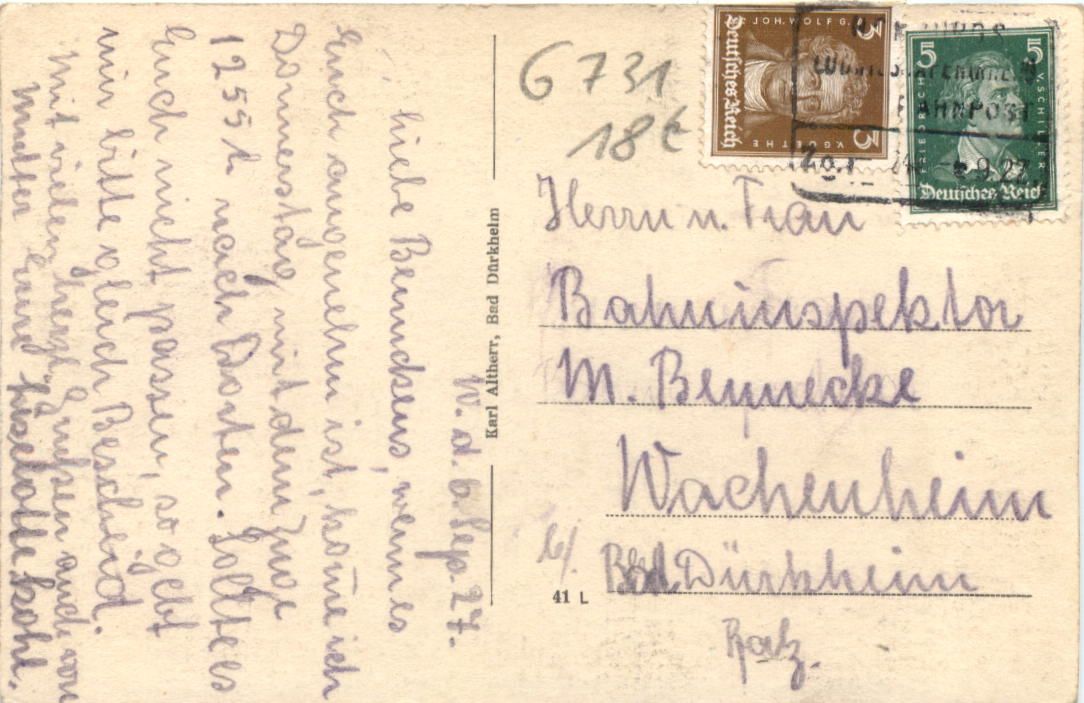 W. d. 6. Sep. 27.
Liebe Benndens, wenn es
Euch angenehm ist, kome ich
Donnerstag mit dem Zuge
12 55 h nach Dorten. Sollte es
Euch nicht passen, so gebt
mir bitte gleich Bescheid.
Mit vielen herzl. Grüßen auch von
Mutter Eure Liselotte Kohl.
Karl Altherr, Bad Dürkheim
41 L
G 731
18 €
JOH. WOLFG.
V. GOETHE
3
3
Deutsches Reich
5
5
FRIEDRICH
V. SCHILLER
Deutsches Reich
BAHNPOST
9. 27
Herrn u. Frau
Bahninspektor
M. Beynecke
Wachenheim
b/.
Bad Dürkheim